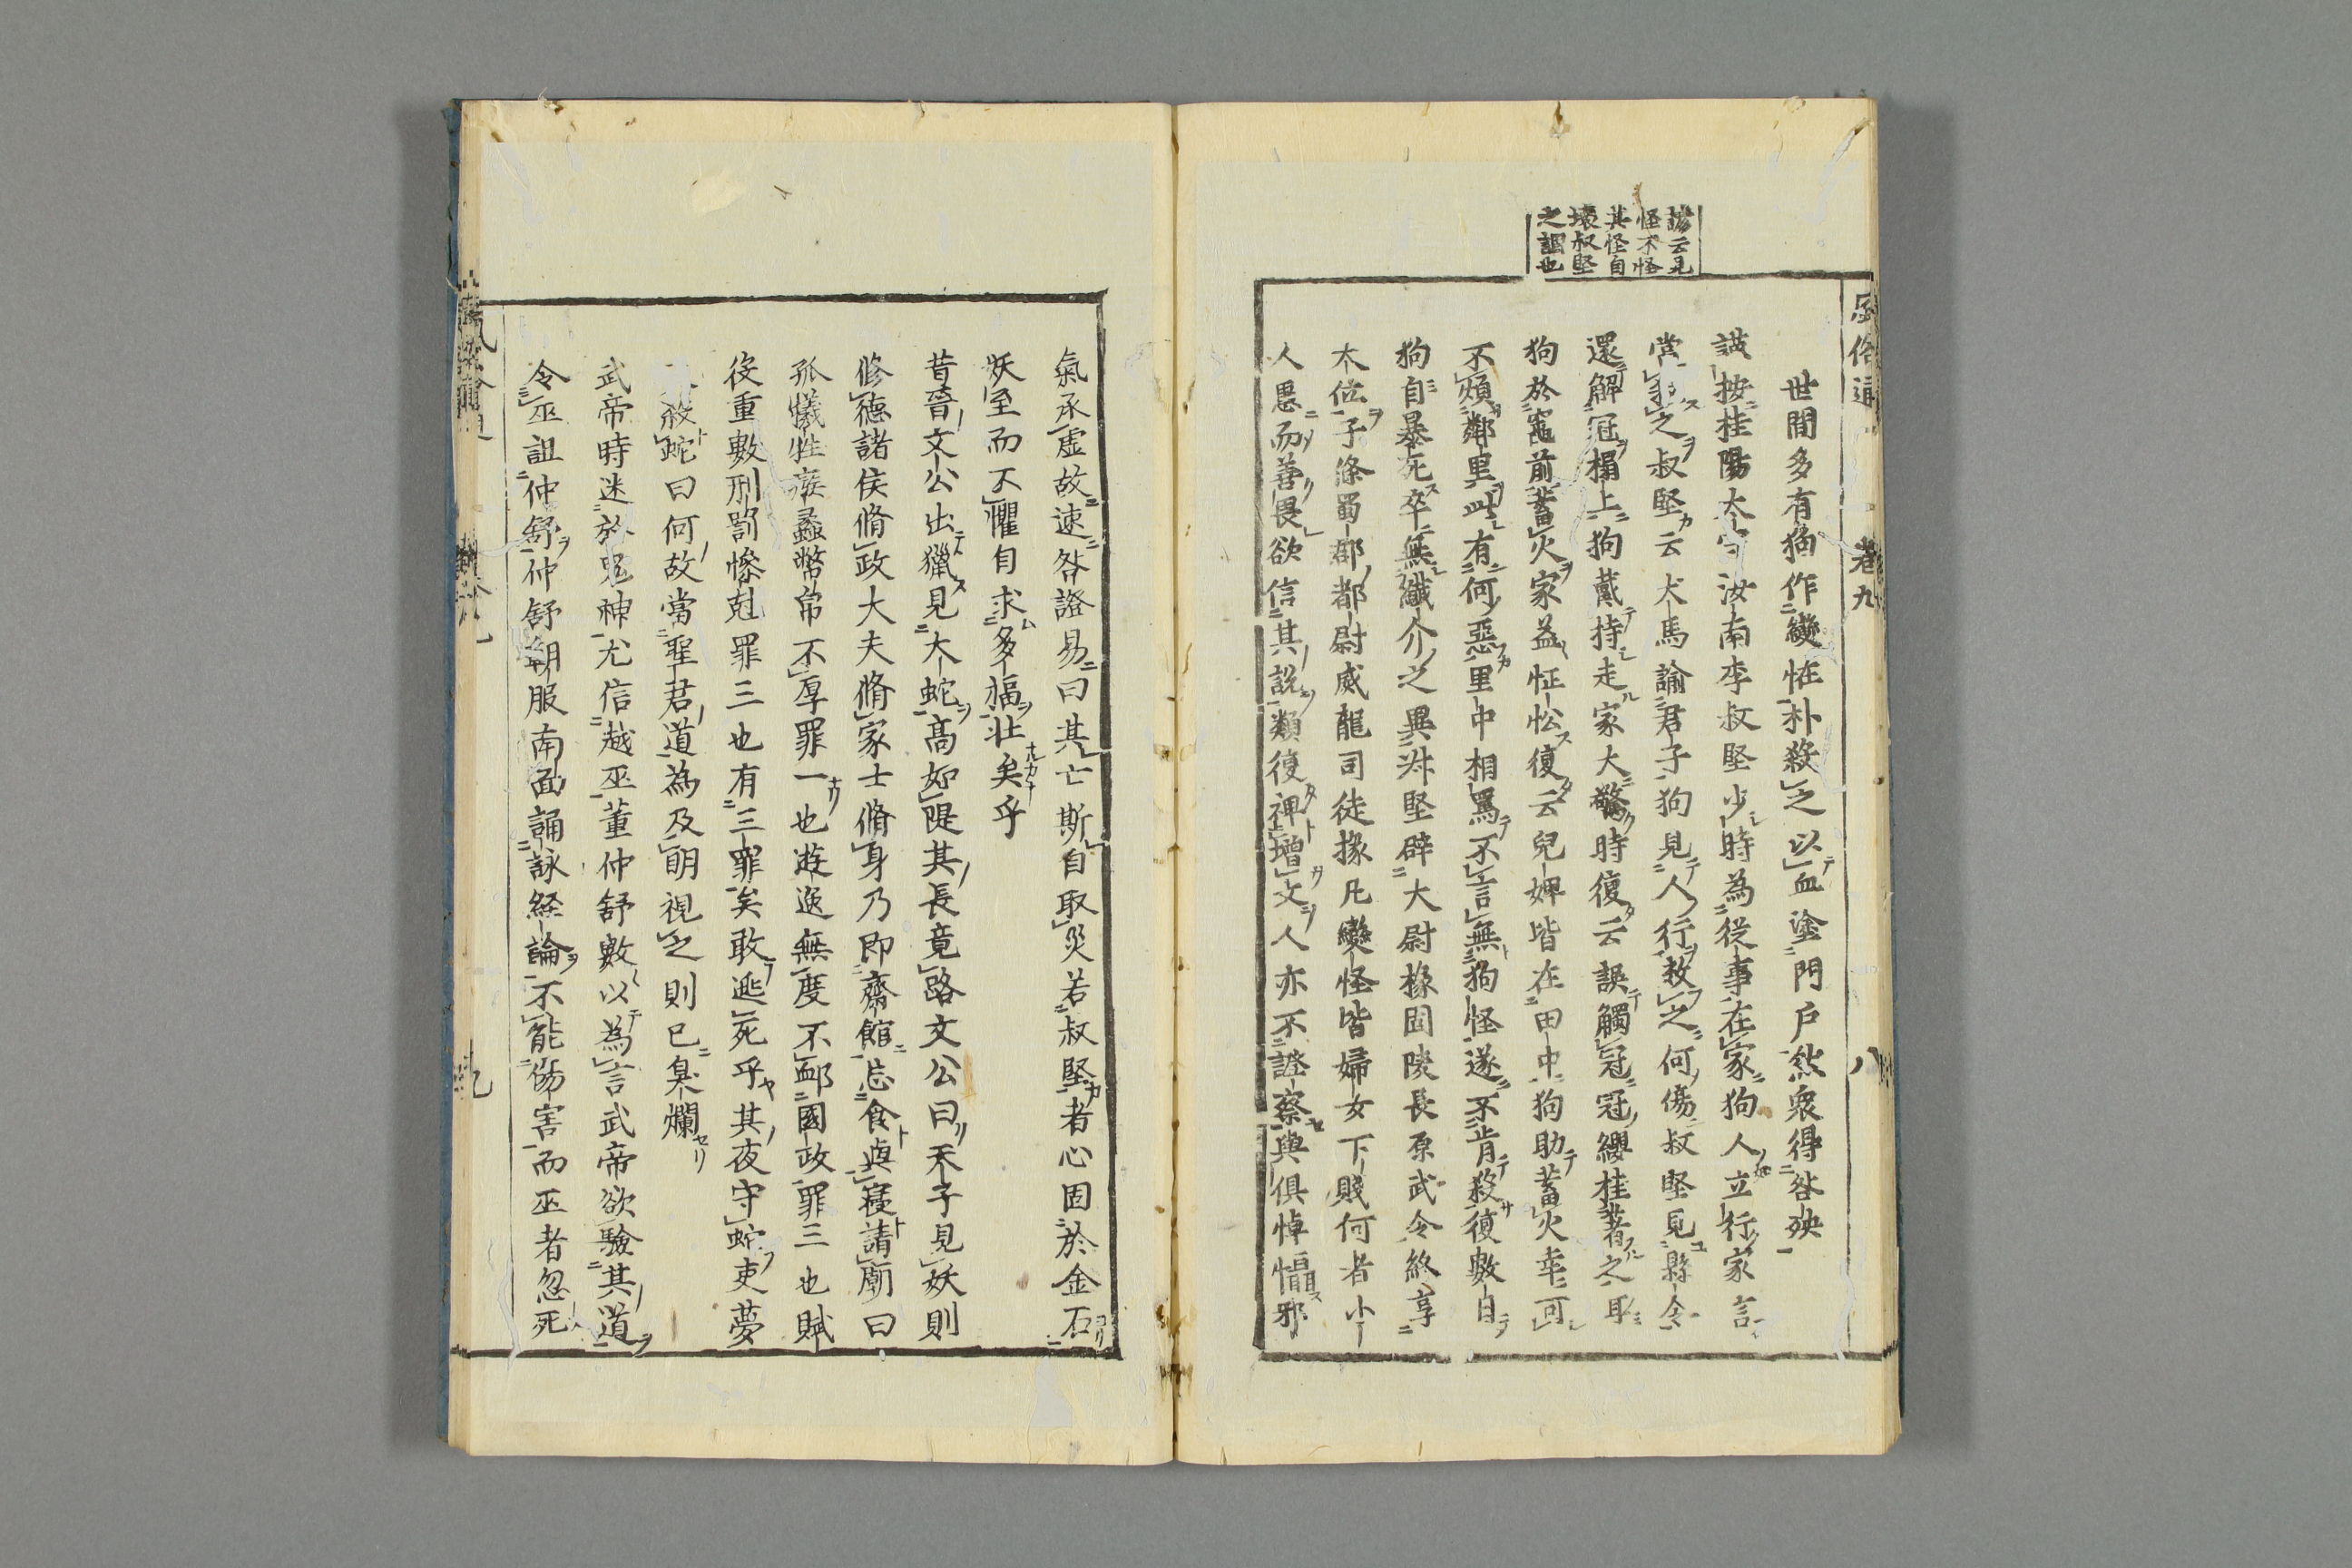 諺云見
怪不怪
其怪自
壊叔堅
之謂也
風俗通 卷九 八
世間多有狗作變怪朴殺之以血塗門戶然衆得咎殃
謹按桂陽太守汝南李叔堅少時為從事在家狗人立行家言
當之叔堅云犬馬諭君子狗見人行效之何傷叔堅見縣令
還解冠榻上狗戴持走家大驚時復云誤觸冠冠纓桂著之耳
狗於竈前蓄火家益怔忪復云兒婢皆在田中狗助蓄火幸可
不煩鄰里此有何惡里中相罵不言無狗怪遂不肯殺復數日
狗自暴死卒無纖介之異叔堅辟大尉掾固陵長原武令終享
大位子條蜀郡都尉威龍司徒掾凡變怪皆婦女下賤何者小
人愚而善畏欲信其說類復裨增文人亦不證察與俱悼懾邪
氣承虛故速咎證易曰其亡斯自取災若叔堅者心固於金石
妖至而不懼自求多福壯矣乎
昔晉文公出獵見大蛇高如隄其長竟路文公曰天子見妖則
修德諸侯脩政大夫脩家士脩身乃即齋館忘食與寢請廟曰
孤犧牲瘯蠡幣帛不厚罪一也遊逸無度不䘏國政罪三也賦
役重數刑罰慘尅罪三也有三罪矣敢逃死乎其夜守蛇吏夢
殺蛇曰何故當聖君道為及明視之則已臭爛
武帝時迷於鬼神尤信越巫董仲舒數以為言武帝欲驗其道
令巫詛仲舒仲舒朝服南面誦詠経論不能傷害而巫者忽死
九